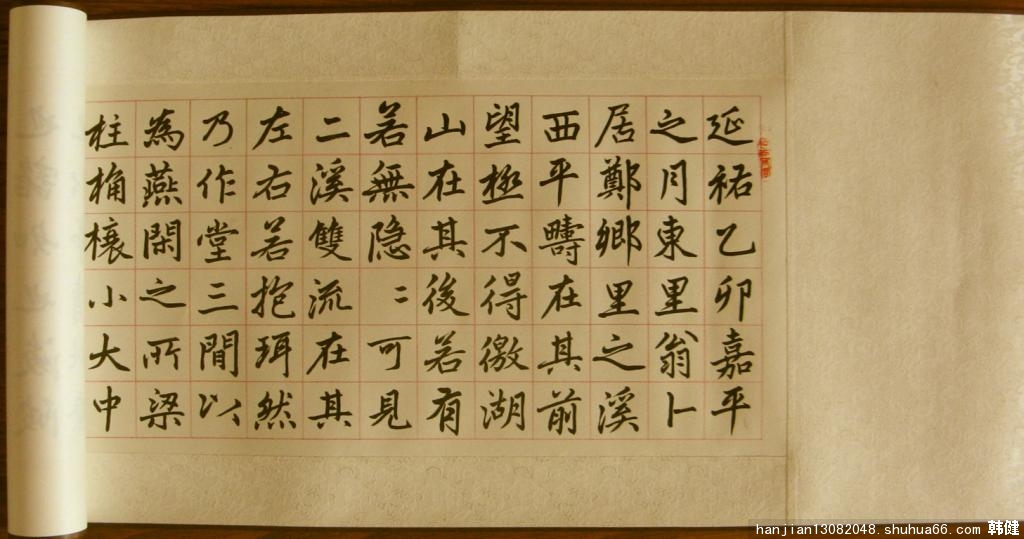 延祐乙卯嘉平
之月東里翁卜
居鄭鄉里之溪
西平疇在其前
望極不得徼湖
山在其後若有
若無隐〻可見
二溪雙流在其
左右若抱珥然
乃作堂三間以
為燕閑之所梁
柱桷榱小大中
hanjian13082048.shuhua66.com 韩健